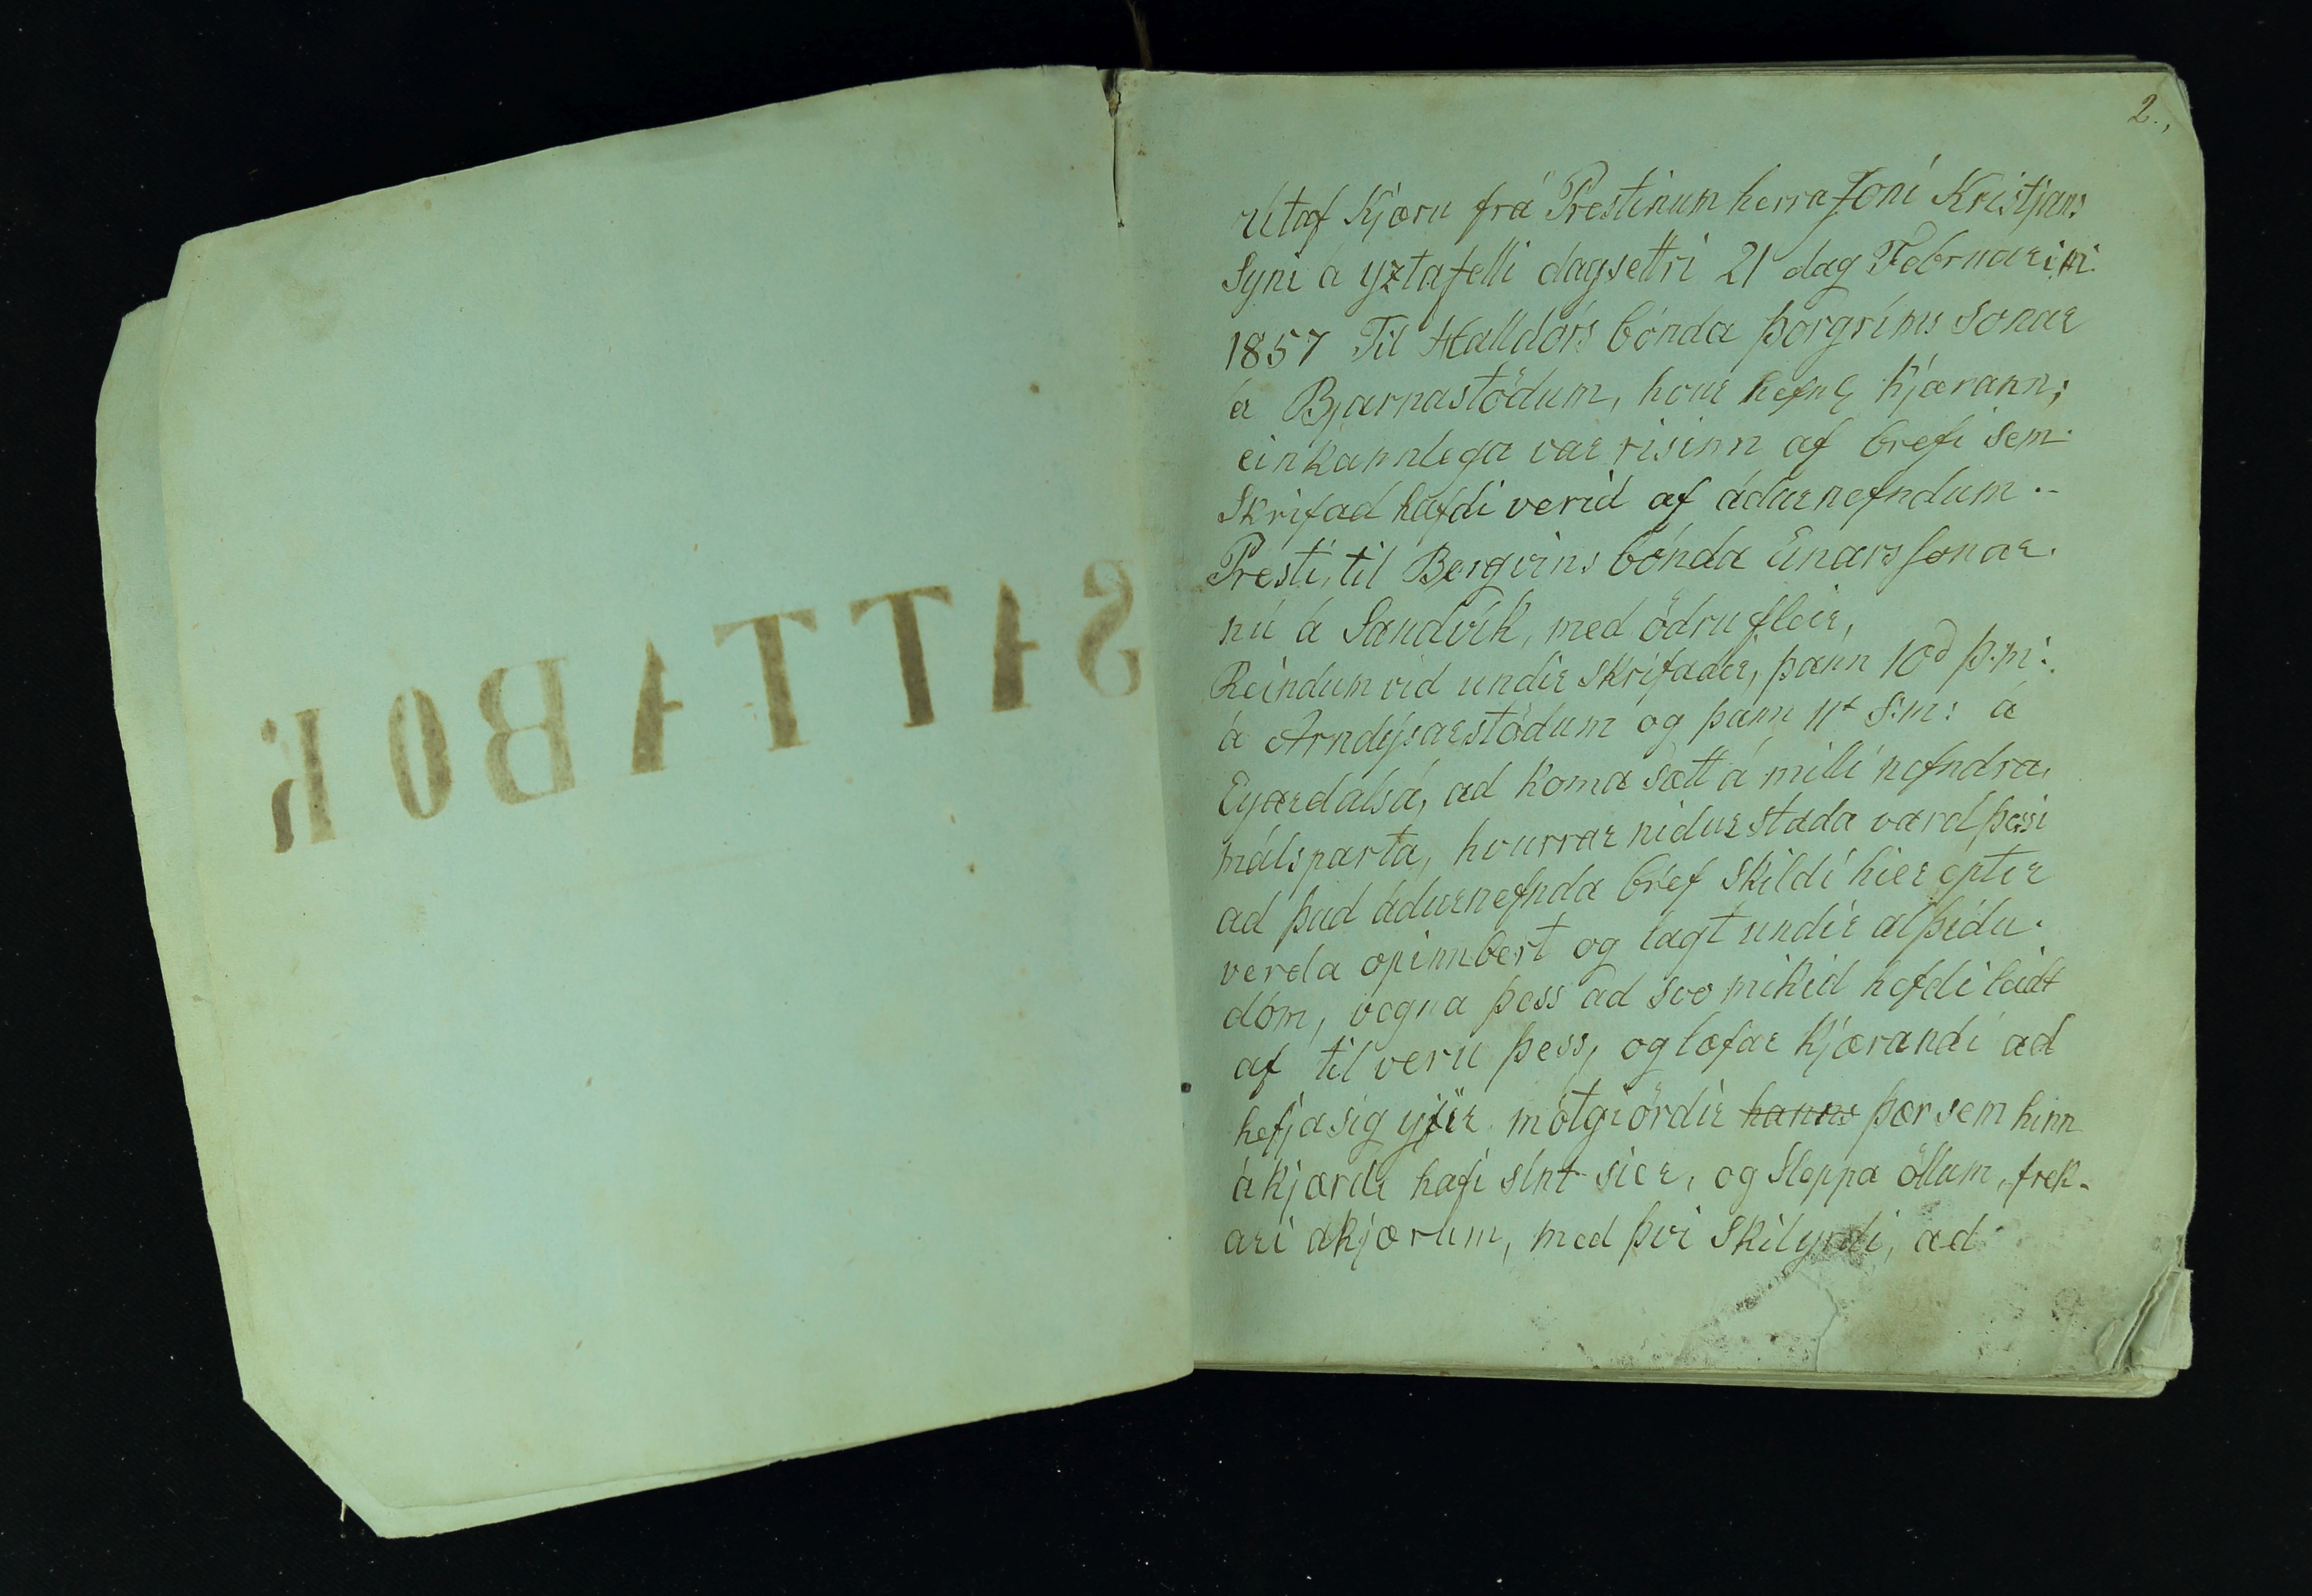 SATTABÓK
2.,
Útaf Kjæru frá Prestinum herra Joni Kristjans
Syni á yztafelli dagsettri 21 dag Februarimi.
1857 Til Halldórs bónda þorgríms Sonar
á Bjarnastödum, hvur nefnd kjærann;
einkannlega var risinn af brefi sem
Skrifad hafdi verid af ádurnefndum.-
Presti, til Bergvins bónda Einarssonar.
nú á Sandvík, med ödru fleir,
Reindum vid undir skrifadir, þann 10d þ.m:.
á Arndýsarstödum og þann 11t s:m: á
Eyardalsá, ad koma sætt á milli nefndra,
málsparta, hvurrar nidurstada vard þessi
ad þad ádurnefnda bref skildi hier eptir
verda opinnbert og lagt undir alþidu.
dóm, vegna þess ad svo mikid hefdi leidt
af til veru þess, og lofar kjærandi ad
hefja sig yfir mótgiördir hanns þær sem hinn
ákjærdi hafi sínt sier, og Sleppa öllum, frek-
ari ákjærum, med þvi Skilyrdi, ad